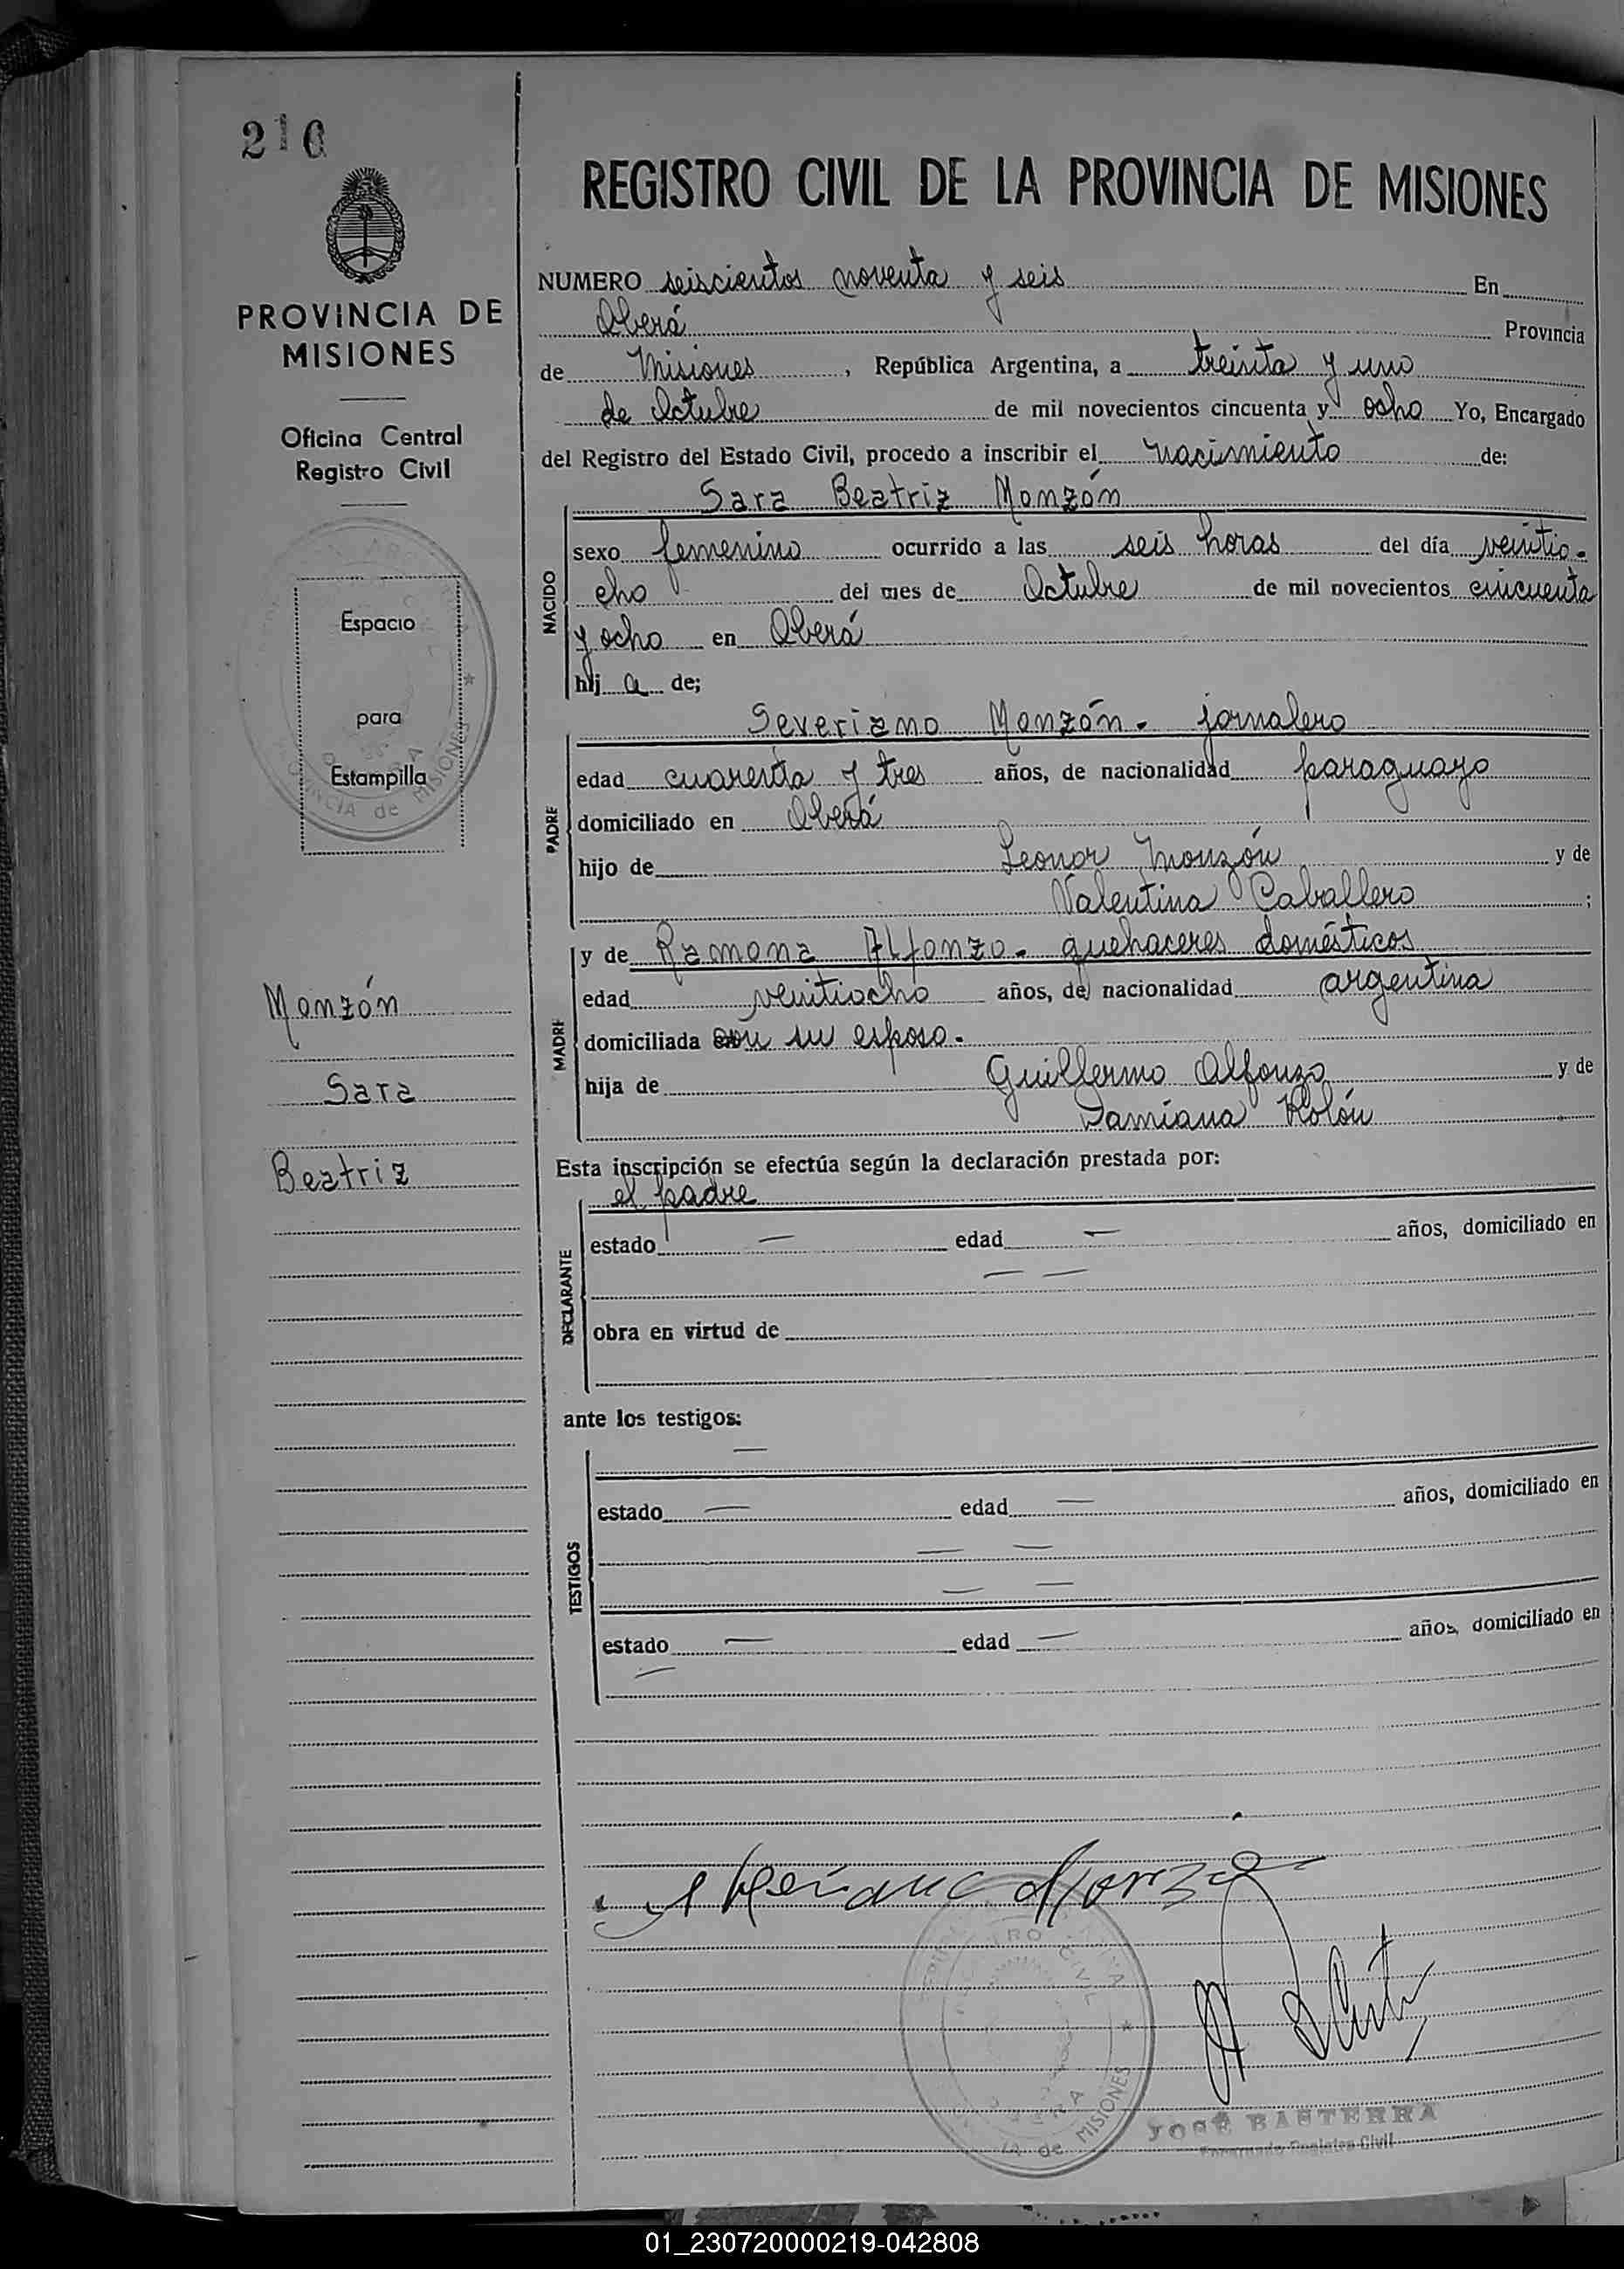 210
PROVINCIA DE
MISIONES
Oficina Central
Registro Civil
Espacio
para
Estampilla
PROVINCIA de MISIONES
Monzón
Sara
Beatriz
REGISTRO CIVIL DE LA PROVINCIA DE MISIONES
NUMERO seiscientos noventa y seis En
Oberá Provincia
de Misiones, República Argentina, a treinta y uno
de Octubre de mil novecientos cincuenta y ocho Yo, Encargado
del Registro del Estado Civil, procedo a inscribir el nacimiento de:
Sara Beatriz Monzón
NACIDO
sexo femenino ocurrido a las seis horas del día veintio-
cho del mes de Octubre de mil novecientos cincuenta
y ocho en Oberá
hij a de;
Severiano Monzón - jornalero
PADRE
edad cuarenta y tres años, de nacionalidad paraguayo
domiciliado en Oberá
hijo de Leonor Monzón y de
Valentina Caballero ;
y de Ramona Alfonzo - quehaceres domésticos
MADRE
edad veintiocho años, de nacionalidad argentina
domiciliada con su esposo -
hija de Guillermo Alfonzo y de
Damiana Rolón
Esta inscripción se efectúa según la declaración prestada por:
el padre
DECLARANTE
estado — edad — años, domiciliado en
— —
obra en virtud de
ante los testigos:
—
TESTIGOS
estado — edad — años, domiciliado en
— —
— —
estado — edad — años, domiciliado en
—
MISIONES
JOSÉ BASTERRA
Encargado Registro Civil
01_230720000219-042808